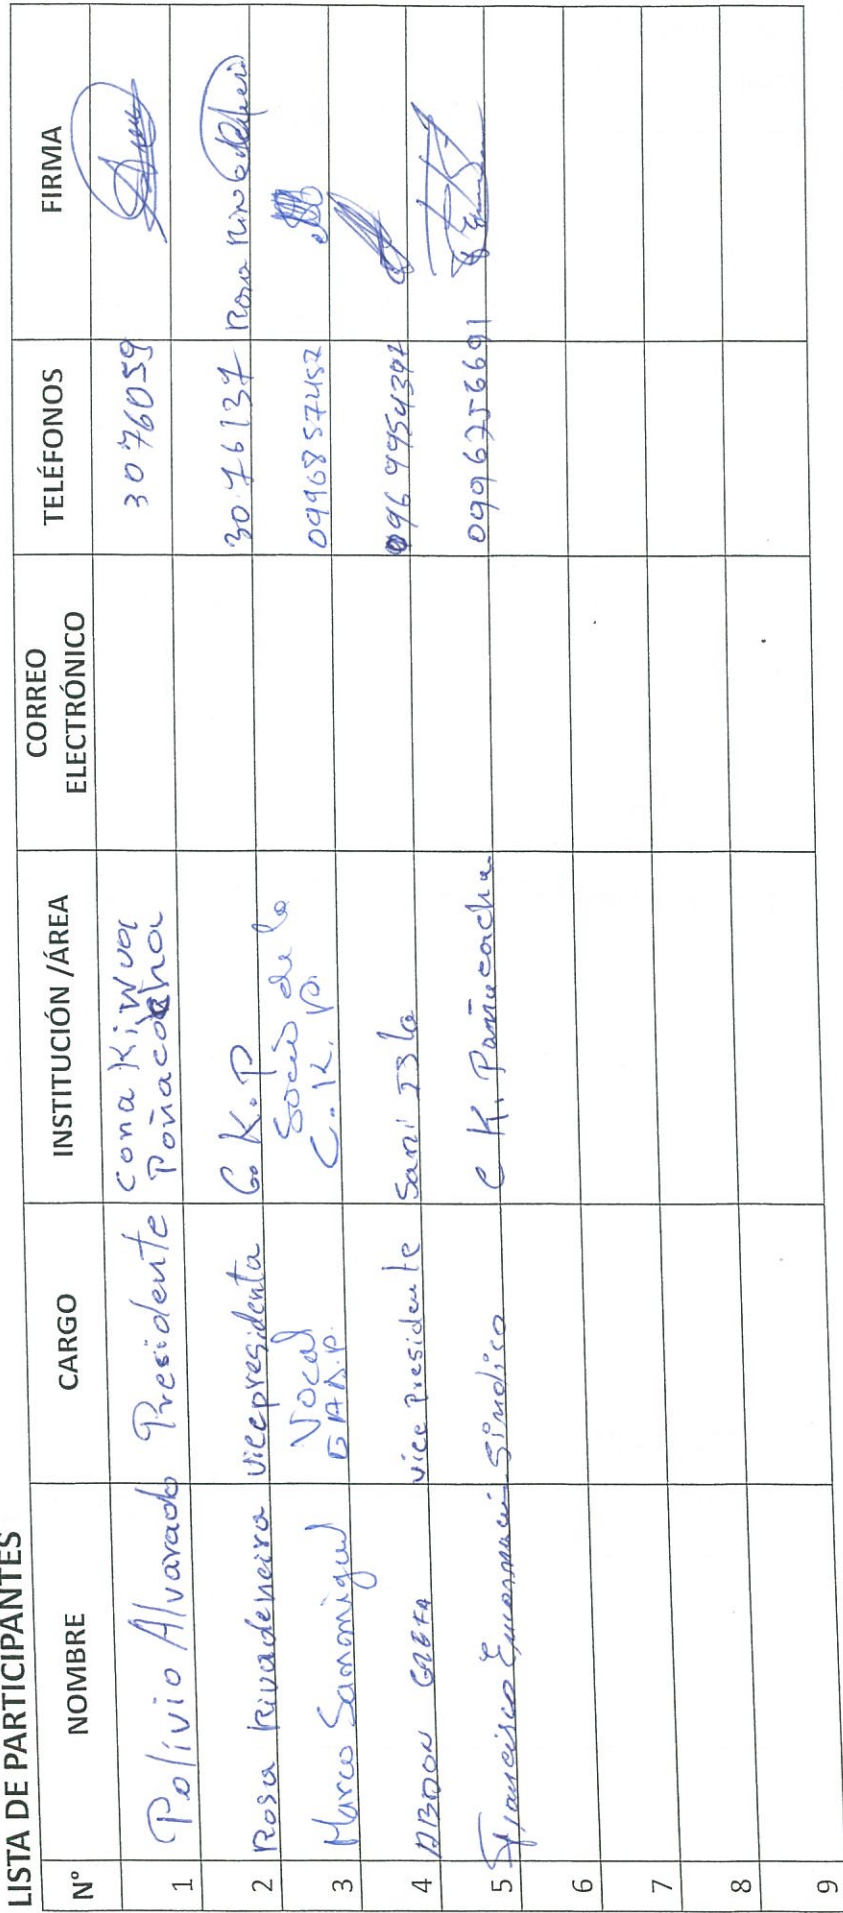 LISTA DE PARTICIPANTES
N° NOMBRE CARGO INSTITUCIÓN /ÁREA CORREO ELECTRÓNICO TELÉFONOS FIRMA
1 Polívio Alvarado Presidente Cona Kiwua Pañacocha 3076059
2 Rosa Rivadeneira Vicepresidenta C.K.P 3076137 Rosa
3 Marco Sanmiguel Vocal GADP. Socio de la C.K.P. 0996857452
4 ABDON vice Presidente Sani Isla
5 Francisco Síndico C K. Pañacocha 0996256691
6
7
8
9